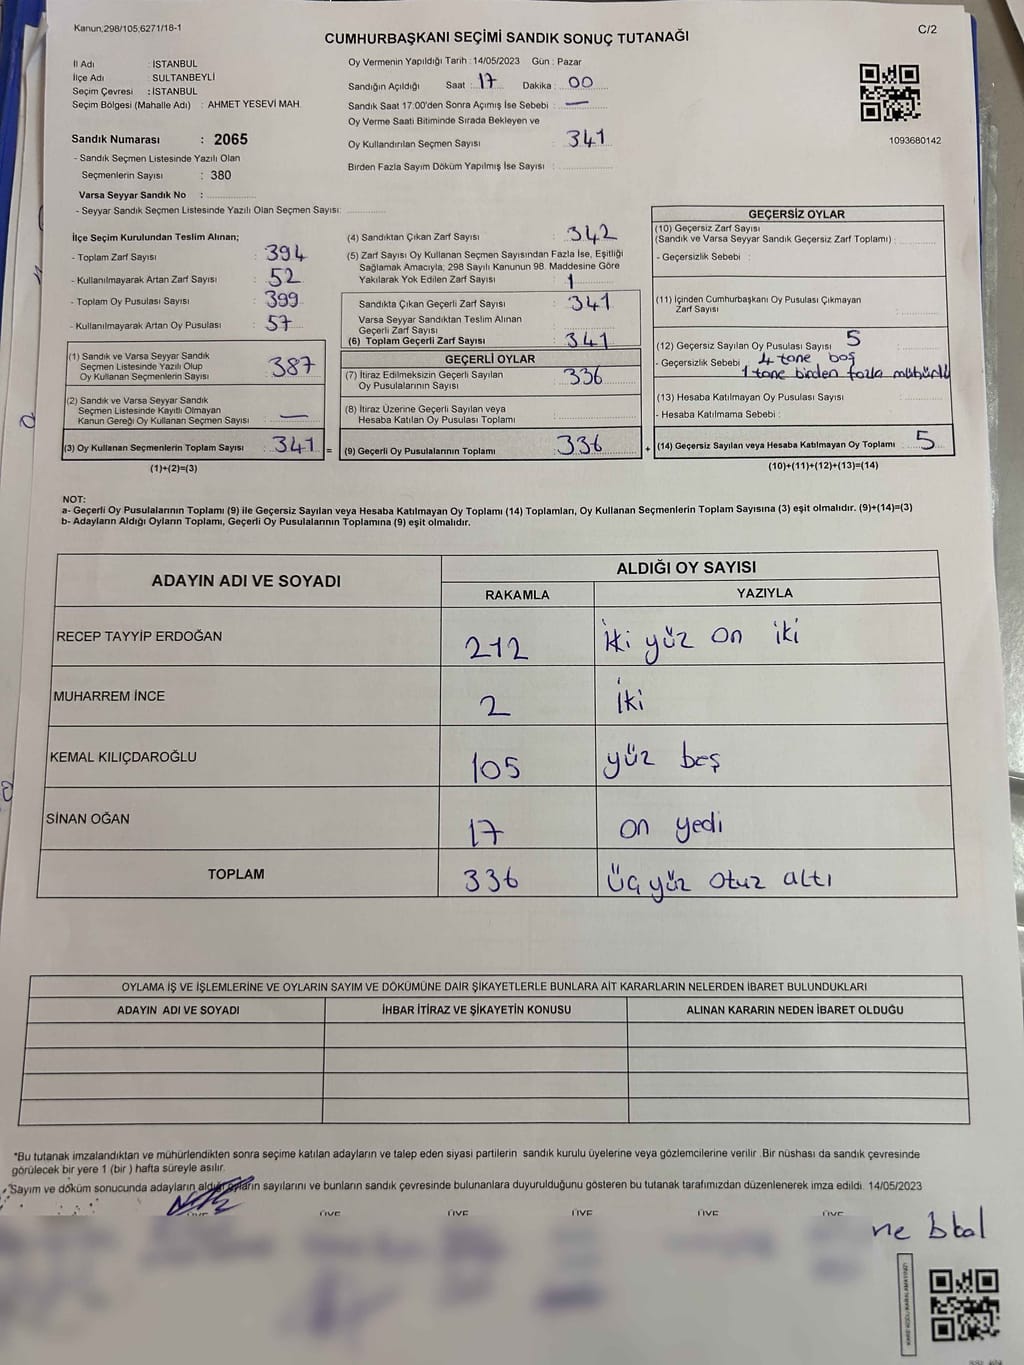 Kanun,298/105,6271/18-1
C/2
CUMHURBAŞKANI SEÇİMİ SANDIK SONUÇ TUTANAĞI
İl Adı : İSTANBUL
İlçe Adı : SULTANBEYLİ
Seçim Çevresi : İSTANBUL
Seçim Bölgesi (Mahalle Adı) : AHMET YESEVİ MAH.
Oy Vermenin Yapıldığı Tarih : 14/05/2023 Gün : Pazar
Sandığın Açıldığı Saat : 17 Dakika : 00
Sandık Saat 17:00'den Sonra Açılmış İse Sebebi : —
Oy Verme Saati Bitiminde Sırada Bekleyen ve
Oy Kullandırılan Seçmen Sayısı : 341
Birden Fazla Sayım Döküm Yapılmış İse Sayısı :
1093680142
Sandık Numarası : 2065
- Sandık Seçmen Listesinde Yazılı Olan
Seçmenlerin Sayısı : 380
Varsa Seyyar Sandık No :
- Seyyar Sandık Seçmen Listesinde Yazılı Olan Seçmen Sayısı:
İlçe Seçim Kurulundan Teslim Alınan;
- Toplam Zarf Sayısı : 394
- Kullanılmayarak Artan Zarf Sayısı : 52
- Toplam Oy Pusulası Sayısı : 399
- Kullanılmayarak Artan Oy Pusulası : 57
(1) Sandık ve Varsa Seyyar Sandık
Seçmen Listesinde Yazılı Olup
Oy Kullanan Seçmenlerin Sayısı : 387
(2) Sandık ve Varsa Seyyar Sandık
Seçmen Listesinde Kayıtlı Olmayan
Kanun Gereği Oy Kullanan Seçmen Sayısı : —
(3) Oy Kullanan Seçmenlerin Toplam Sayısı : 341 =
(1)+(2)=(3)
(4) Sandıktan Çıkan Zarf Sayısı : 342
(5) Zarf Sayısı Oy Kullanan Seçmen Sayısından Fazla İse, Eşitliği
Sağlamak Amacıyla; 298 Sayılı Kanunun 98. Maddesine Göre
Yakılarak Yok Edilen Zarf Sayısı : 1
Sandıkta Çıkan Geçerli Zarf Sayısı : 341
Varsa Seyyar Sandıktan Teslim Alınan
Geçerli Zarf Sayısı :
(6) Toplam Geçerli Zarf Sayısı : 341
GEÇERLİ OYLAR
(7) İtiraz Edilmeksizin Geçerli Sayılan
Oy Pusulalarının Sayısı : 336
(8) İtiraz Üzerine Geçerli Sayılan veya
Hesaba Katılan Oy Pusulası Toplamı :
(9) Geçerli Oy Pusulalarının Toplamı : 336 +
GEÇERSİZ OYLAR
(10) Geçersiz Zarf Sayısı
(Sandık ve Varsa Seyyar Sandık Geçersiz Zarf Toplamı) :
- Geçersizlik Sebebi :
(11) İçinden Cumhurbaşkanı Oy Pusulası Çıkmayan
Zarf Sayısı :
(12) Geçersiz Sayılan Oy Pusulası Sayısı : 5
- Geçersizlik Sebebi : 4 tane boş
1 tane birden fazla mühürlü
(13) Hesaba Katılmayan Oy Pusulası Sayısı :
- Hesaba Katılmama Sebebi :
(14) Geçersiz Sayılan veya Hesaba Katılmayan Oy Toplamı : 5
(10)+(11)+(12)+(13)=(14)
NOT:
a- Geçerli Oy Pusulalarının Toplamı (9) ile Geçersiz Sayılan veya Hesaba Katılmayan Oy Toplamı (14) Toplamları, Oy Kullanan Seçmenlerin Toplam Sayısına (3) eşit olmalıdır. (9)+(14)=(3)
b- Adayların Aldığı Oyların Toplamı, Geçerli Oy Pusulalarının Toplamına (9) eşit olmalıdır.
ADAYIN ADI VE SOYADI
ALDIĞI OY SAYISI
RAKAMLA YAZIYLA
RECEP TAYYİP ERDOĞAN 212 İki yüz on iki
MUHARREM İNCE 2 İki
KEMAL KILIÇDAROĞLU 105 yüz beş
SİNAN OĞAN 17 on yedi
TOPLAM 336 Üç yüz otuz altı
OYLAMA İŞ VE İŞLEMLERİNE VE OYLARIN SAYIM VE DÖKÜMÜNE DAİR ŞİKAYETLERLE BUNLARA AİT KARARLARIN NELERDEN İBARET BULUNDUKLARI
ADAYIN ADI VE SOYADI İHBAR İTİRAZ VE ŞİKAYETİN KONUSU ALINAN KARARIN NEDEN İBARET OLDUĞU
*Bu tutanak imzalandıktan ve mühürlendikten sonra seçime katılan adayların ve talep eden siyasi partilerin sandık kurulu üyelerine veya gözlemcilerine verilir .Bir nüshası da sandık çevresinde
görülecek bir yere 1 (bir ) hafta süreyle asılır.
*Sayım ve döküm sonucunda adayların aldığı oyların sayılarını ve bunların sandık çevresinde bulunanlara duyurulduğunu gösteren bu tutanak tarafımızdan düzenlenerek imza edildi. 14/05/2023
ÜYE ÜYE ÜYE ÜYE ÜYE ÜYE